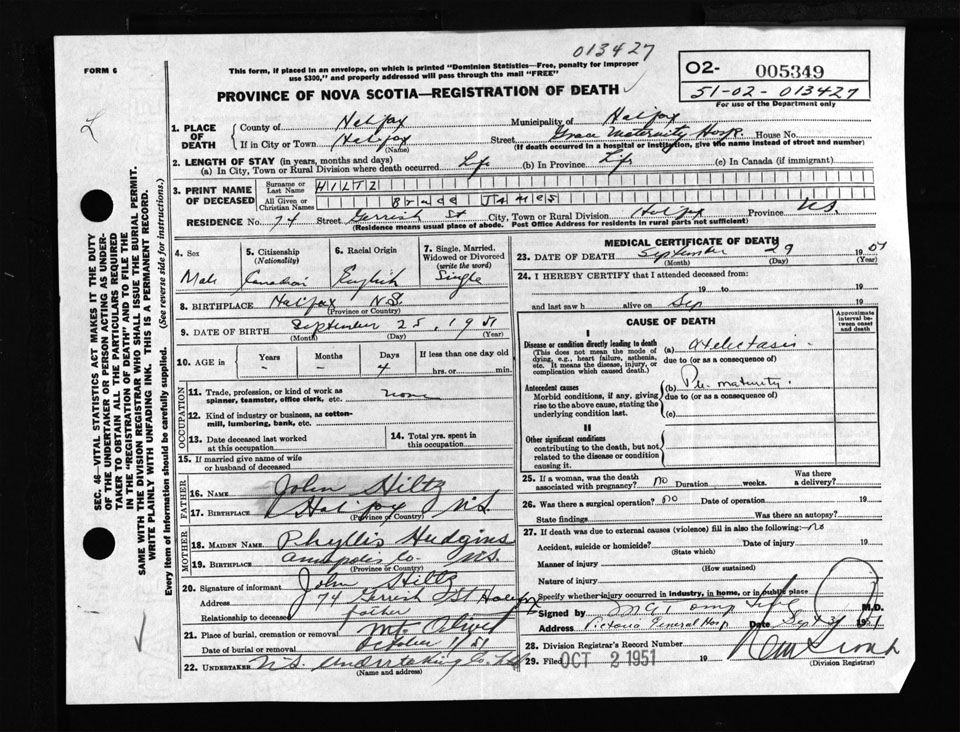 013427
FORM 6
This form, if placed in an envelope, on which is printed "Dominion Statistics—Free, penalty for improper
use $300," and properly addressed will pass through the mail "FREE"
PROVINCE OF NOVA SCOTIA—REGISTRATION OF DEATH
O2- 005349
51-02-013427
For use of the Department only
SEC. 46—VITAL STATISTICS ACT MAKES IT THE DUTY
OF THE UNDERTAKER OR PERSON ACTING AS UNDER-
TAKER TO OBTAIN ALL THE PARTICULARS REQUIRED
IN THE "REGISTRATION OF DEATH" AND TO FILE THE
SAME WITH THE DIVISION REGISTRAR WHO SHALL ISSUE THE BURIAL PERMIT.
WRITE PLAINLY WITH UNFADING INK. THIS IS A PERMANENT RECORD.
Every item of Information should be carefully supplied. (See reverse side for instructions.)
1. PLACE OF DEATH
County of Halifax Municipality of Halifax
If in City or Town Halifax (Name) Street Grace Maternity Hosp. House No.
(If death occurred in a hospital or institution, give the name instead of street and number)
2. LENGTH OF STAY (in years, months and days)
(a) In City, Town or Rural Division where death occurred Life (b) In Province Life (c) In Canada (if immigrant)
3. PRINT NAME OF DECEASED
Surname or Last Name HILTZ
All Given or Christian Names Bruce James
RESIDENCE No. 74 Street Gerrish St City, Town or Rural Division Halifax Province N.S.
(Residence means usual place of abode. Post Office Address for residents in rural parts not sufficient)
4. Sex
Male
5. Citizenship (Nationality)
Canadian
6. Racial Origin
English
7. Single, Married, Widowed or Divorced (write the word)
Single
8. BIRTHPLACE Halifax N.S.
(Province or Country)
9. DATE OF BIRTH September 25, 1951
(Month) (Day) (Year)
10. AGE in Years Months Days If less than one day old
- - 4 hrs. or min.
OCCUPATION
11. Trade, profession, or kind of work as
spinner, teamster, office clerk, etc. none
12. Kind of industry or business, as cotton-
mill, lumbering, bank, etc.
13. Date deceased last worked
at this occupation
14. Total yrs. spent in
this occupation
15. If married give name of wife
or husband of deceased
FATHER
16. NAME John Hiltz
17. BIRTHPLACE Halifax N.S.
(Province or Country)
MOTHER
18. MAIDEN NAME Phyllis Hudgins
19. BIRTHPLACE Annapolis Co. N.S.
(Province or Country)
20. Signature of informant John Hiltz
Address 74 Gerrish St Halifax
Relationship to deceased father
21. Place of burial, cremation or removal Mt. Olivet
Date of burial or removal October 1/51
22. UNDERTAKER N.S. Undertaking Co. Ltd
(Name and address)
MEDICAL CERTIFICATE OF DEATH
23. DATE OF DEATH September 29 1951
(Month) (Day) (Year)
24. I HEREBY CERTIFY that I attended deceased from:
19 to 19
and last saw h alive on Sep 19
CAUSE OF DEATH
Approximate interval between onset and death
I
Disease or condition directly leading to death
(This does not mean the mode of
dying, e.g., heart failure, asthenia,
etc. It means the disease, injury, or
complication which caused death.)
(a) Atelectasis
due to (or as a consequence of)
Antecedent causes
Morbid conditions, if any, giving
rise to the above cause, stating the
underlying condition last.
(b) Pre-maturity.
due to (or as a consequence of)
(c)
II
Other significant conditions
contributing to the death, but not
related to the disease or condition
causing it.
25. If a woman, was the death
associated with pregnancy? no Duration weeks. Was there a delivery?
26. Was there a surgical operation? no Date of operation 19
State findings Was there an autopsy?
27. If death was due to external causes (violence) fill in also the following:- no
Accident, suicide or homicide? Date of injury 19
(State which)
Manner of injury
(How sustained)
Nature of injury
Specify whether injury occurred in industry, in home, or in public place
Signed by M.D.
Address Victoria General Hosp Date Sept 19 51
28. Division Registrar's Record Number
29. Filed OCT 2 1951 19
(Division Registrar)